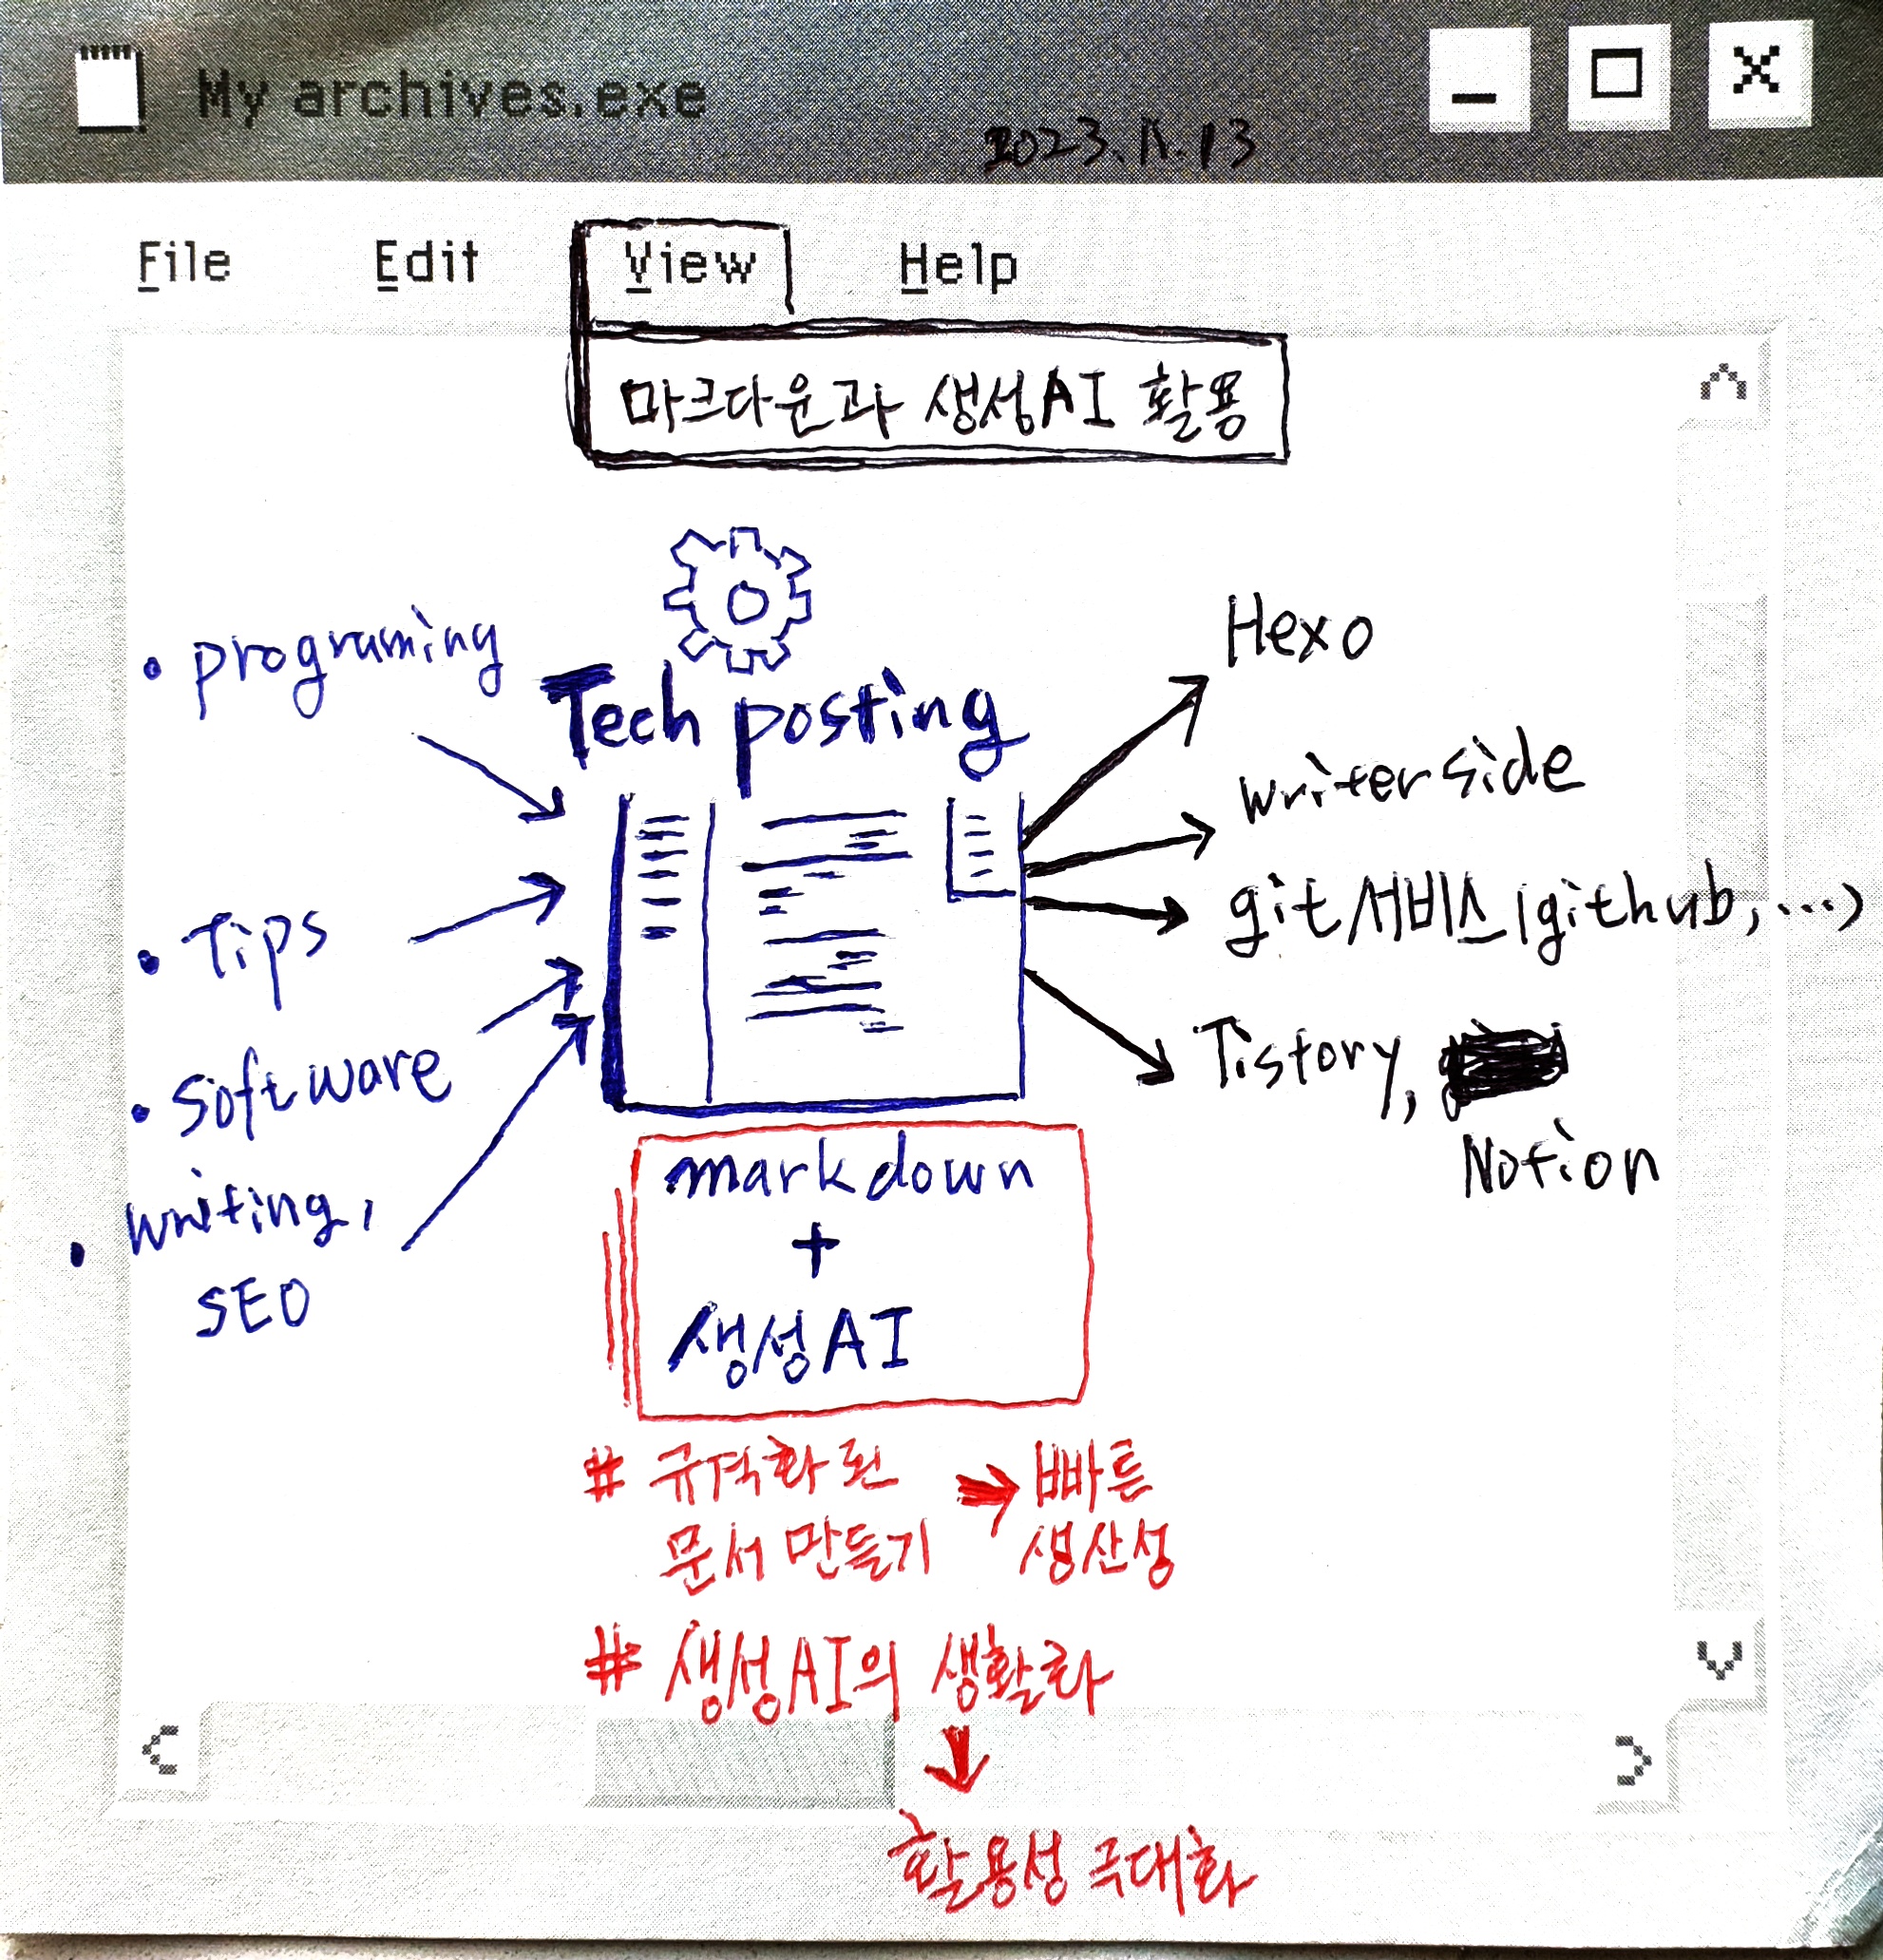 My archives.exe
2023.11.13
File Edit View Help
마크다운과 생성AI 활용
• programing
Tech posting
• Tips
• software
• writing,
SEO
Hexo
writerside
git서비스(github, ...)
Tistory,
Notion
markdown
+
생성AI
# 규격화된
문서 만들기
→ 빠른
생산성
# 생성AI의 생활화
↓
활용성 극대화